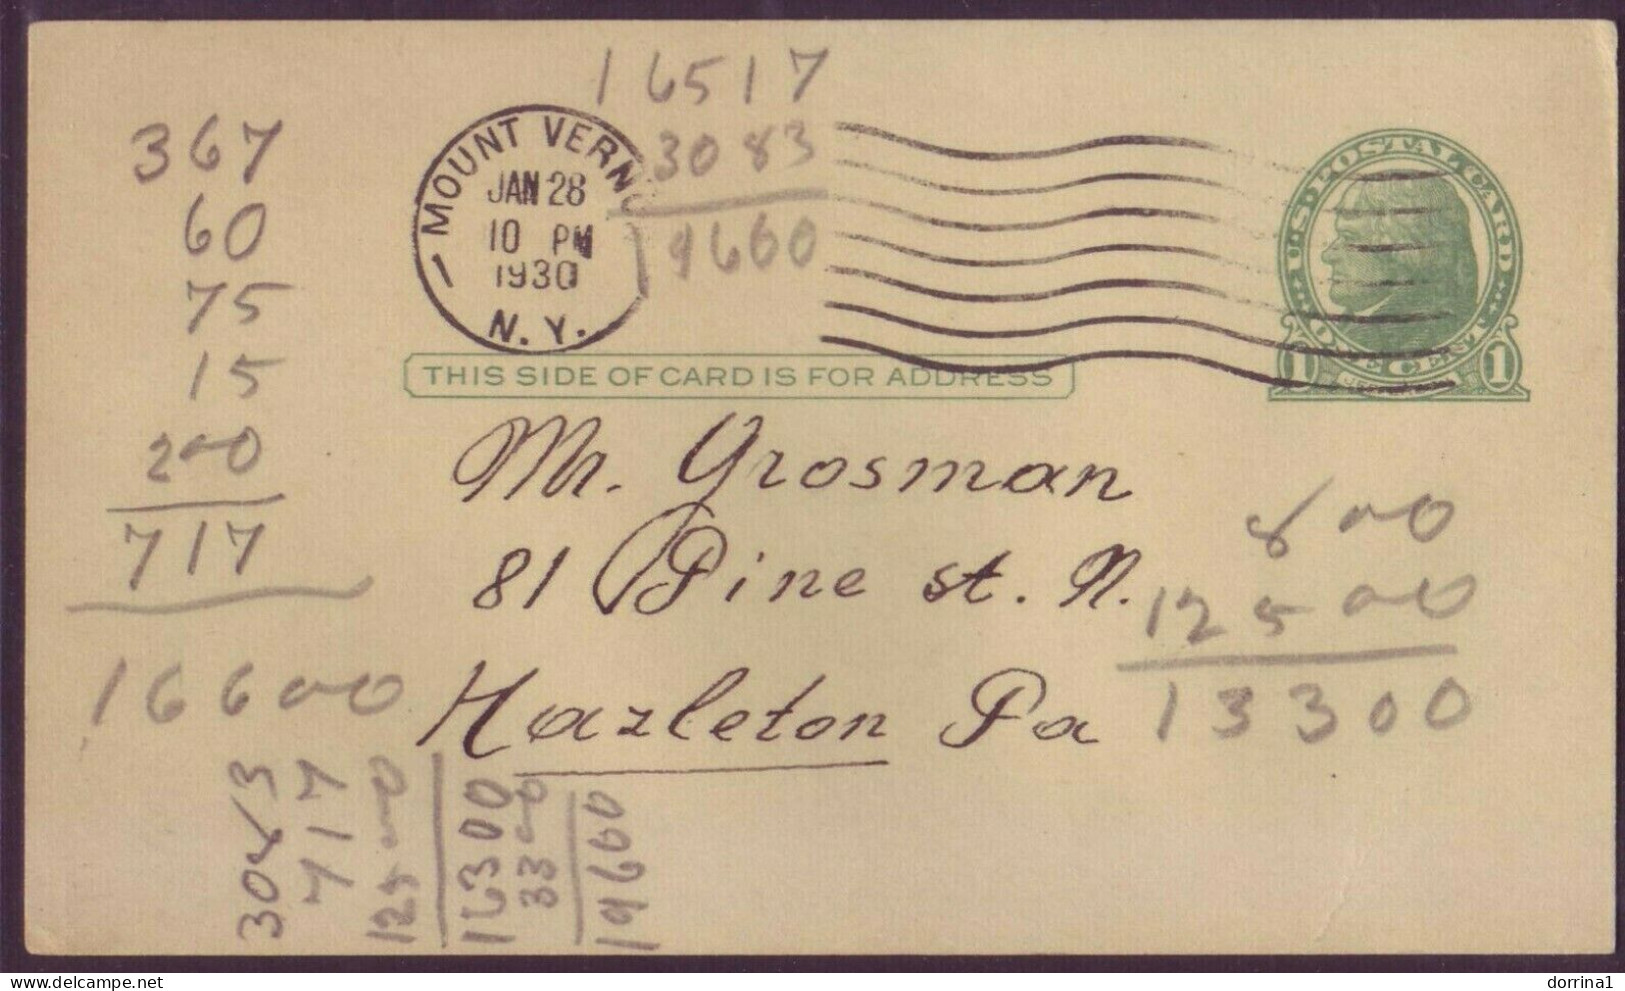 16517
3083
19600
MOUNT VERNO
JAN 28
10 PM
1930
N. Y.
U.S. POSTAL CARD
ONE CENT
1 1
THIS SIDE OF CARD IS FOR ADDRESS
367
60
75
15
200
717
16600
Mr. Grosman
81 Pine st. N.
Hazleton Pa
800
12500
13300
3083
717
12500
16300
3300
19600
delcampe.net
dorrina1